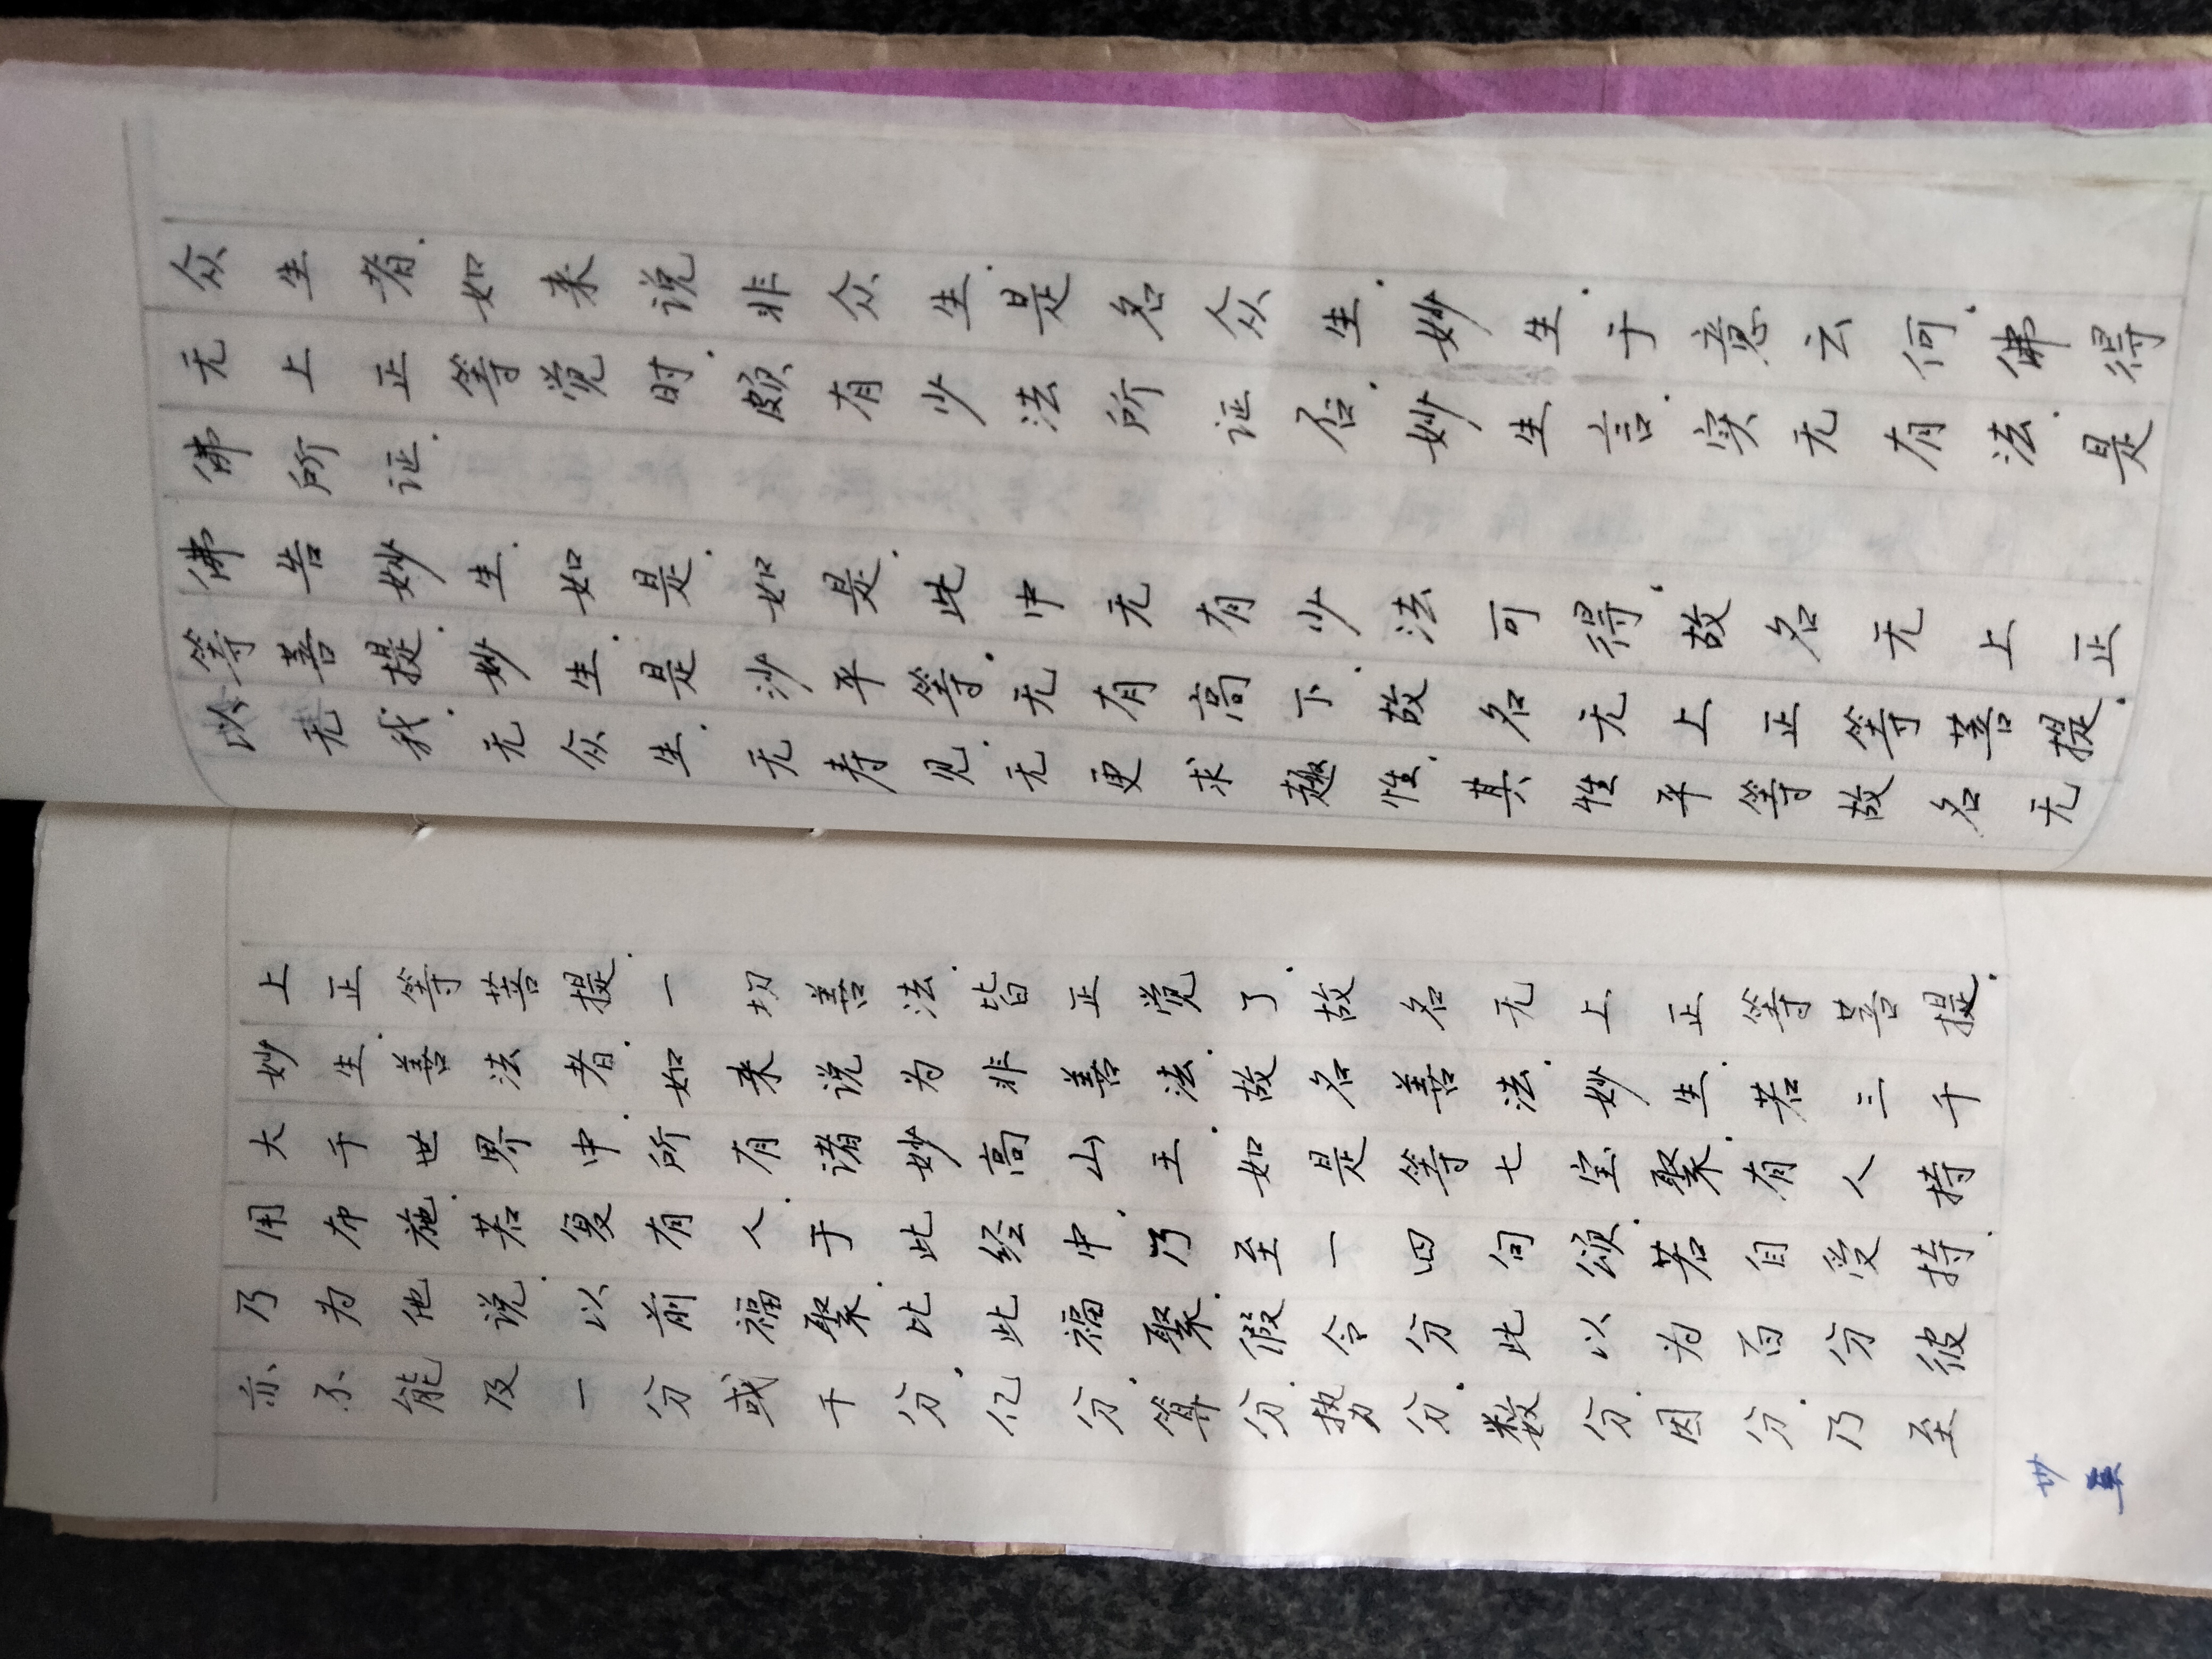 众生者.如来说非众生.是名众生.妙生.于意云何.佛得
无上正等觉时.颇有少法所证否.妙生言.实无有法.是
佛所证.
佛告妙生.如是.如是.此中无有少法可得.故名无上正
等菩提.妙生.是沙平等.无有高下.故名无上正等菩提.
以无我.无众生.无寿见.无更求趣性.其性平等故名无
上正等菩提.一切善法.皆正觉了.故名无上正等菩提.
妙生.善法者.如来说为非善法.故名善法.妙生.若三千
大千世界中.所有诸妙高山王.如是等七宝聚.有人持
用布施.若复有人.于此经中.乃至一四句颂.若自受持.
乃为他说.以前福聚.比此福聚.假令分此以为百分彼
亦不能及一分或千分.亿分.算分.势分.数分.因分.乃至